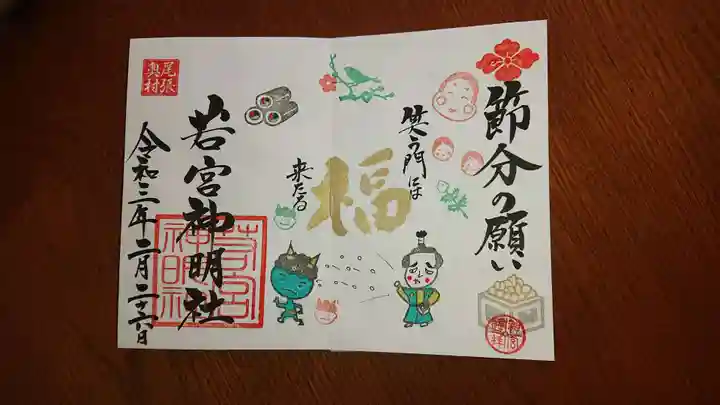 節分の願い
笑う門には
福
来たる
若宮神明社
令和三年二月二十六日
尾張
奥村
若宮
神明社